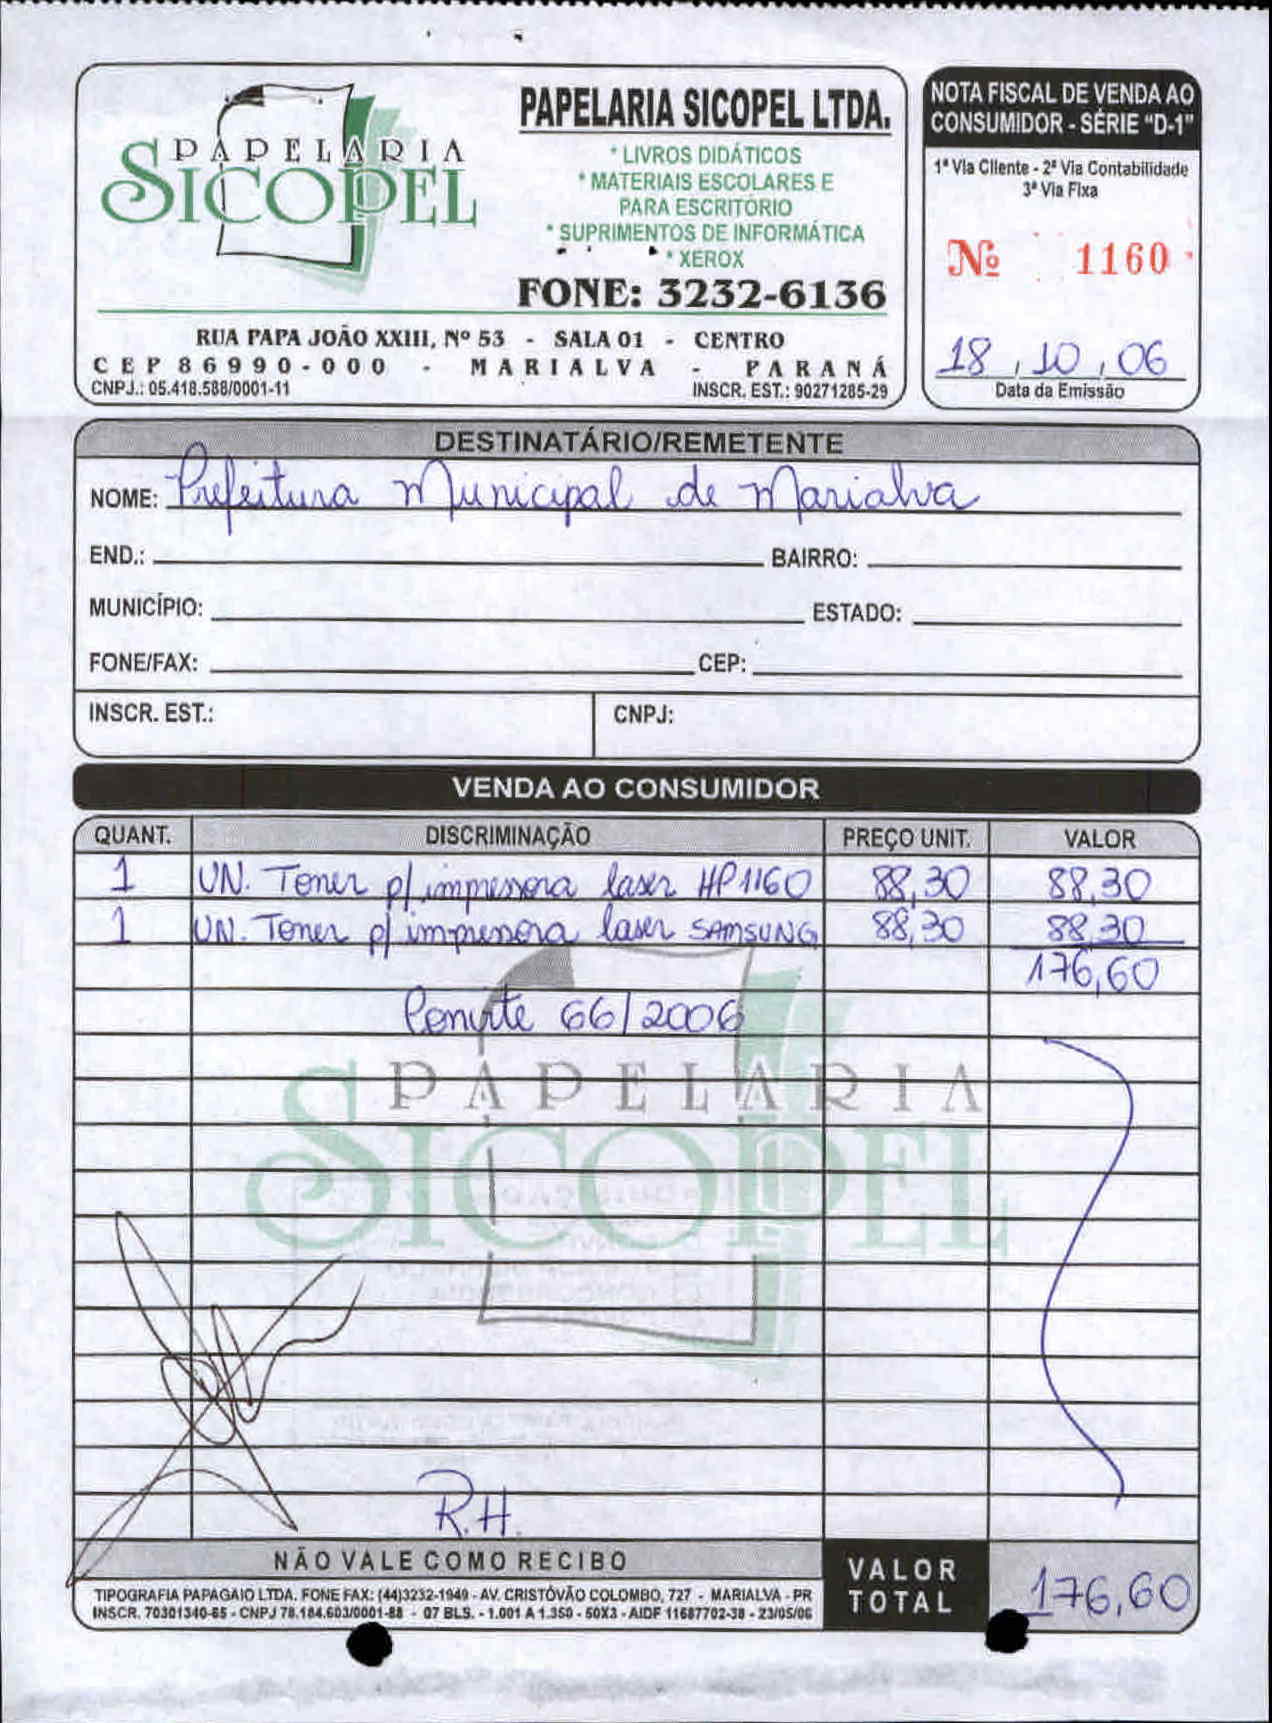 PAPELARIA
SICOPEL
PAPELARIA SICOPEL LTDA.
* LIVROS DIDÁTICOS
* MATERIAIS ESCOLARES E
PARA ESCRITÓRIO
* SUPRIMENTOS DE INFORMÁTICA
* XEROX
FONE: 3232-6136
RUA PAPA JOÃO XXIII, Nº 53 - SALA 01 - CENTRO
CEP 86990-000 - MARIALVA - PARANÁ
CNPJ.: 05.418.588/0001-11 INSCR. EST.: 90271285-29
NOTA FISCAL DE VENDA AO
CONSUMIDOR - SÉRIE "D-1"
1ª Via Cliente - 2ª Via Contabilidade
3ª Via Fixa
Nº 1160
18, 10, 06
Data da Emissão
DESTINATÁRIO/REMETENTE
NOME: Prefeitura Municipal de Marialva
END.: BAIRRO:
MUNICÍPIO: ESTADO:
FONE/FAX: CEP:
INSCR. EST.: CNPJ:
VENDA AO CONSUMIDOR
QUANT. DISCRIMINAÇÃO PREÇO UNIT. VALOR
1 UN. Toner p/ impressora laser HP1160 88,30 88,30
1 UN. Toner p/ impressora laser SAMSUNG 88,30 88,30
176,60
Convite 66/2006
PAPELARIA
SICOPEL
R.H.
NÃO VALE COMO RECIBO
VALOR TOTAL 176,60
TIPOGRAFIA PAPAGAIO LTDA. FONE FAX: (44)3232-1949 - AV. CRISTÓVÃO COLOMBO, 727 - MARIALVA - PR
INSCR. 70301340-65 - CNPJ 78.184.603/0001-88 - 07 BLS. - 1.001 A 1.350 - 50X3 - AIDF 11687702-38 - 23/05/06